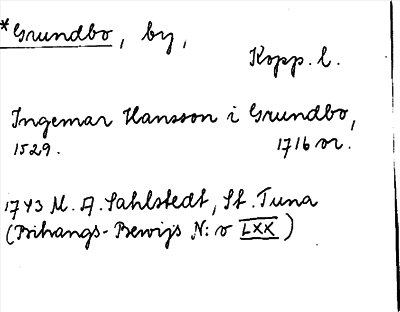 *Grundbo, by,
Kopp. l.
Ingemar Hansson i Grundbo,
1529. 1716 or.
1743 M. A. Sahlstedt, St. Tuna
(Bihangs-Bewijs N:o LXX)